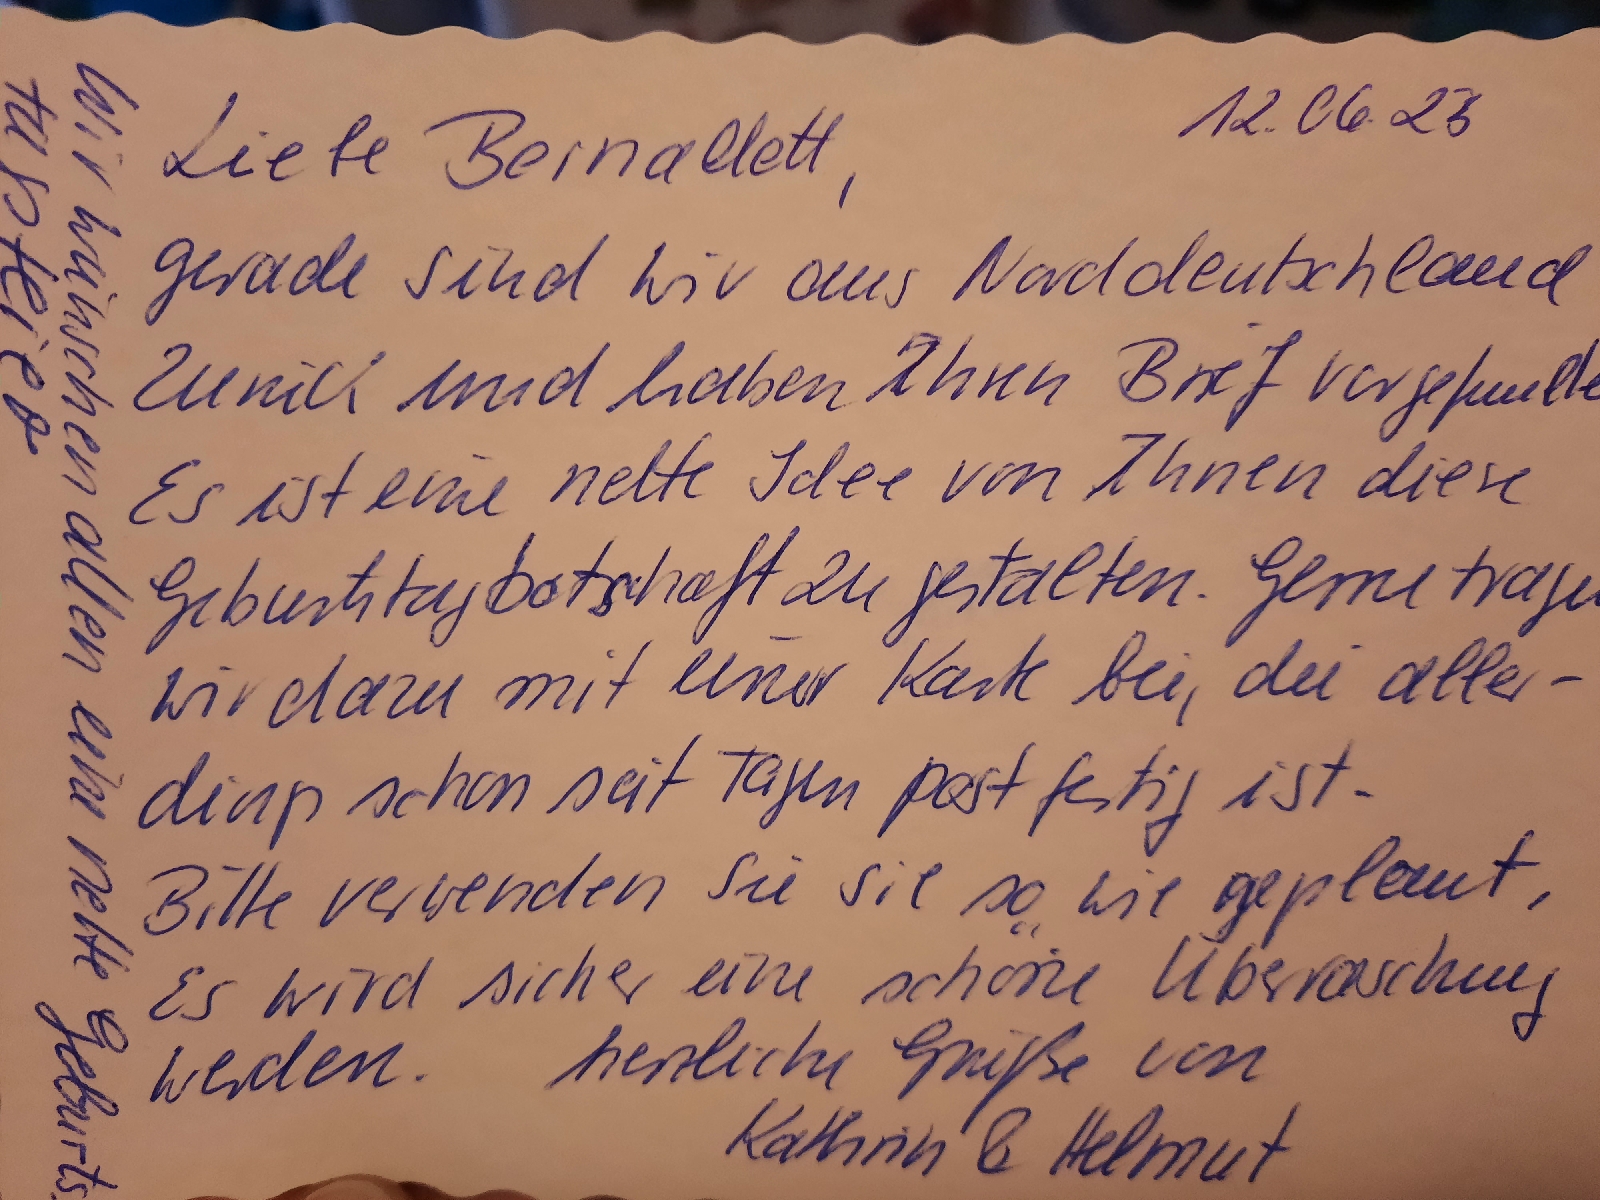 12.06.23
Liebe Bernadett,
gerade sind wir aus Norddeutschland
zurück und haben Ihren Brief vorgefunde
Es ist eine nette Idee von Ihnen diese
Geburtstagbotschaft zu gestalten. Gerne tragen
wir dazu mit einer Karte bei, die aller-
dings schon seit Tagen postfertig ist.
Bitte verwenden Sie sie so, wie geplant,
Es wird sicher eine schöne Überraschung
werden. herzliche Grüße von
Kathrin & Helmut
Wir wünschen allen eine nette Geburts-
tagsfeier